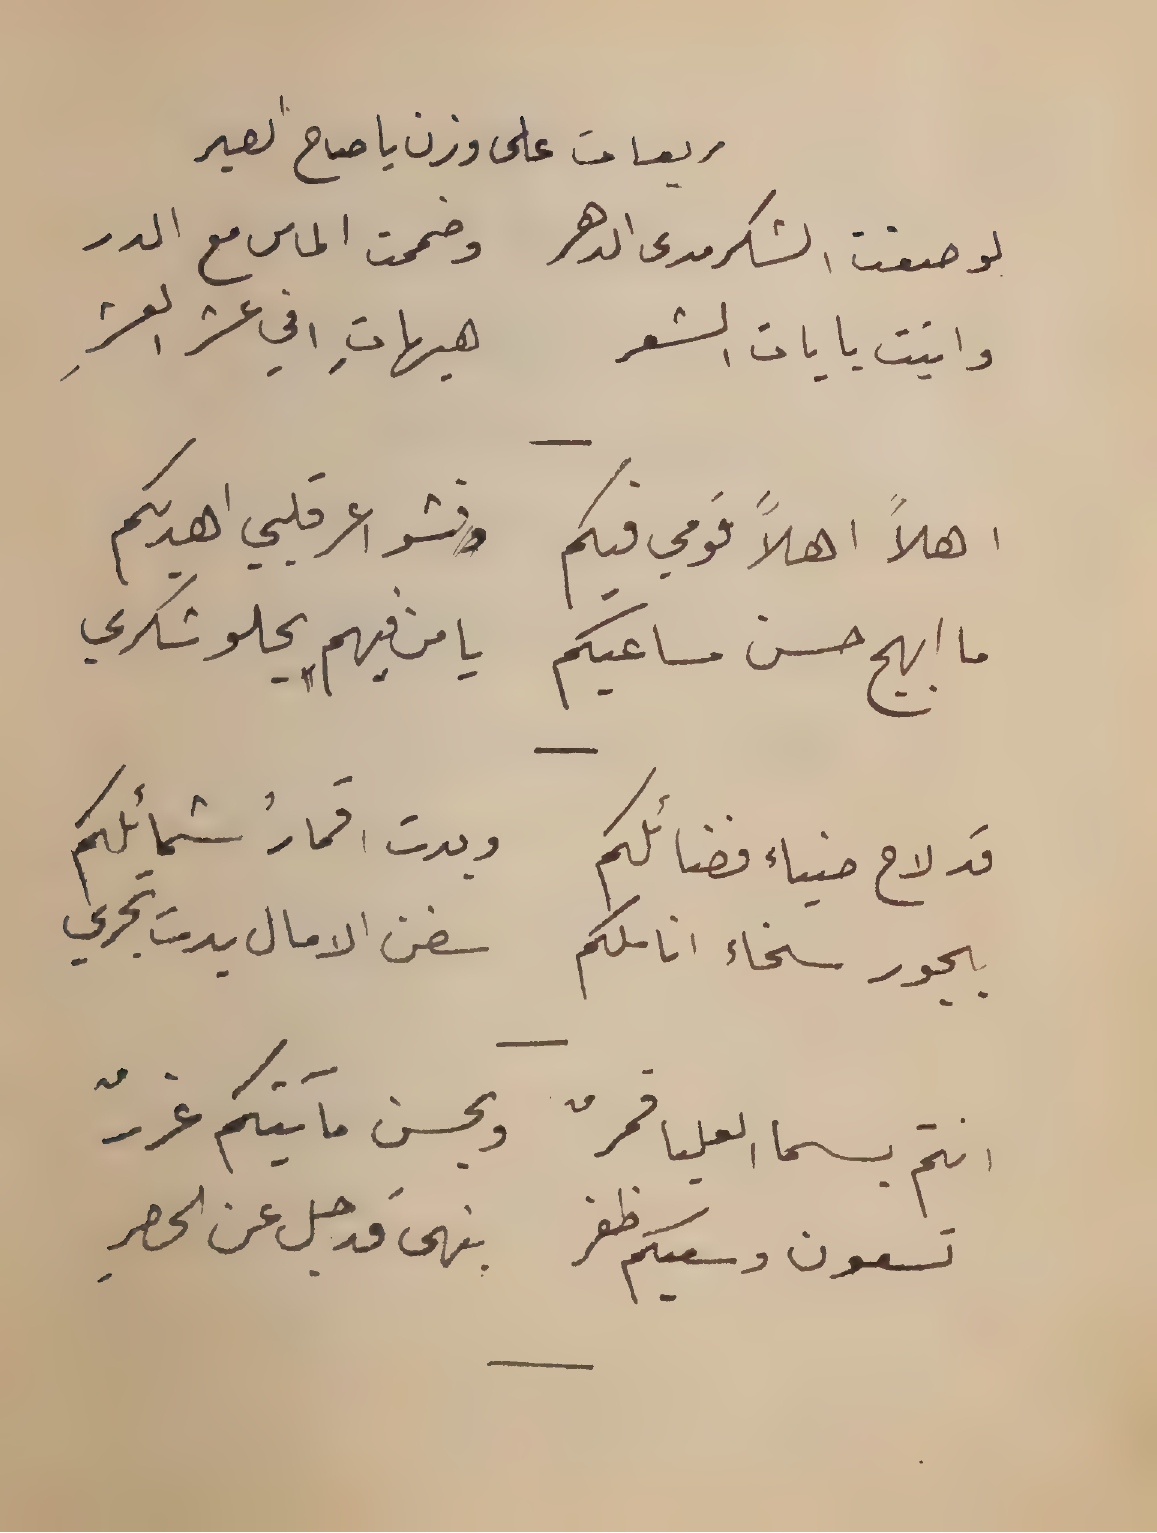 مربعات على وزن يا صاح الصبر
لو صغت الشكر مدى الدهر وضممت الماس مع الدر
واتيت بايات الشعر هيهاتِ افي عشر العشرِ
اهلاً اهلاً قومي فيكم وفشواعر قلبي اهديكم
ما ابهج حسن مساعيكم يا من فيهم يحلو شكري
قد لاح ضياء فضائلكم وبدت اقمارُ شمائلكم
ببحور سخاء اناملكم سفن الامال بدت تجري
انتم بسما العليا قمرٌ وبحسن مآتيكم غررٌ
تسعون وسعيكم ظفر بنهى قد جل عن الحصرِ